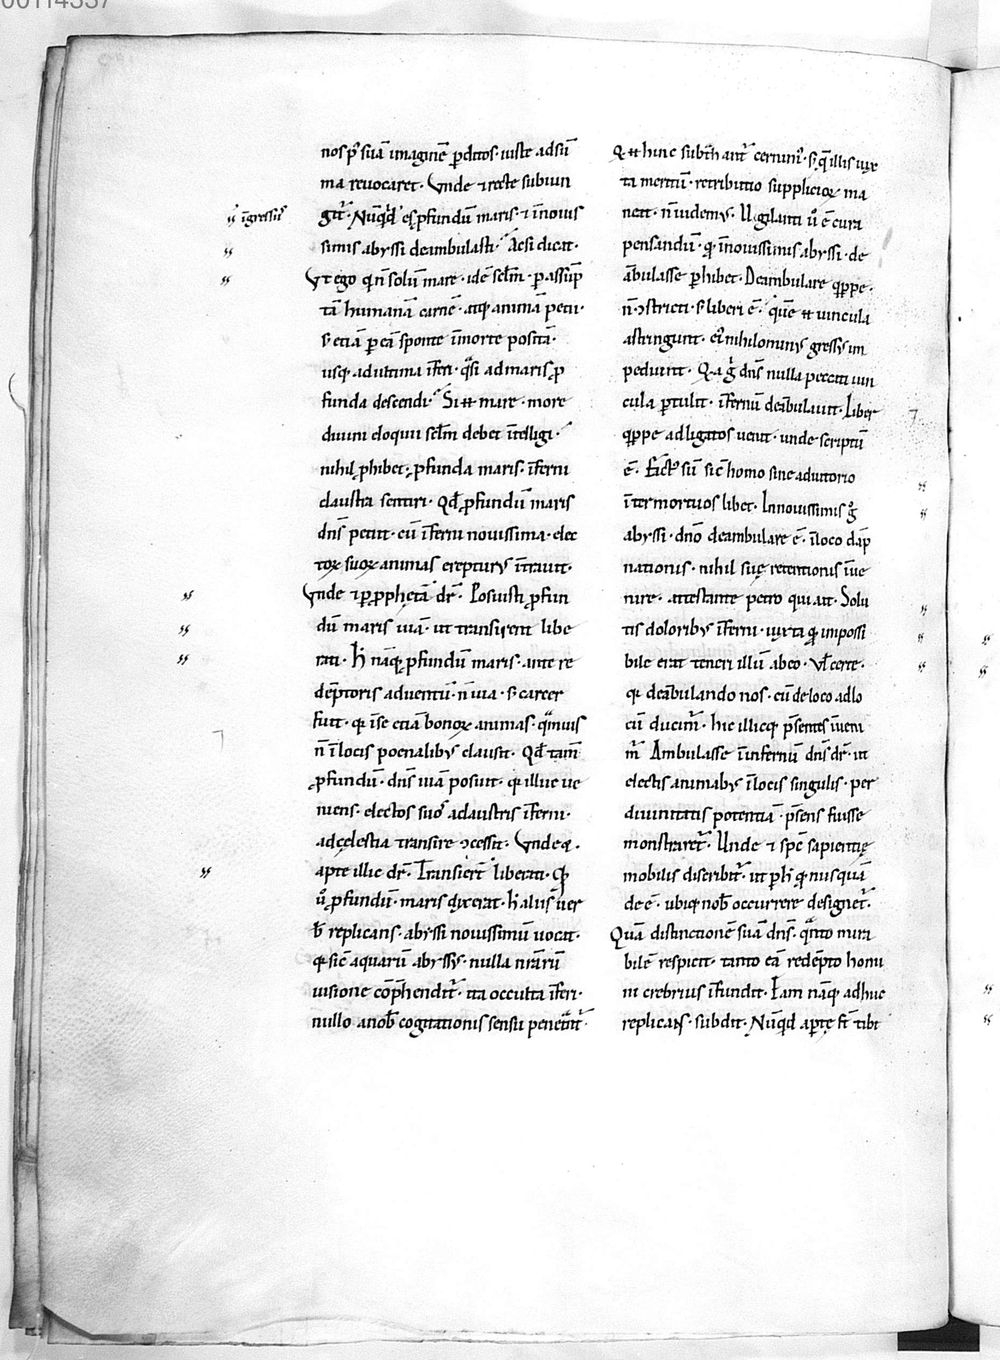 nos p̄ suā imaginē ꝑditos iuste ad sūm
ma reuocaret· Vnde ⁊ recte subiun
īgressus
git̄· Nūq̇d es ꝓfundū maris· ⁊ īnouis
simis abyssi deambulasti· Ac si dicat·
Vt ego qͥ n̄ solū mare· idē sclm̄· ꝑ assūp
tā humanā carnē· atq; animā petii·
s; etiā ꝑ eā sponte ī morte positā·
usq; ad ultima īferi· q̄si ad maris ꝓ
funda descendi· Si eni mare· more
diuini eloquii sclm̄ debet ītelligi·
nihil ꝓhibet· ꝓfunda maris· īferni
claustra sentiri· Qd̄ ꝓfundū maris
dn̄s petiit· cū īferni nouissima· elec
toꝝ suoꝝ animas erepturꝰ ītrauit·
Vnde ⁊ ꝑ ꝓphetā dr̄· Posuisti ꝓfun
dū maris uiā· ut transirent libe
rati· H̄ nāq; ꝓfundū maris· ante re
dēptoris aduentū· n̄ uia· s; carcer
fuit· qa ī se etiā bonoꝝ animas· qͣmuis
n̄ ī locis poenalibꝰ clausit· Qd̄ tam̄
ꝓfundū· dn̄s uiā posuit· qa illuc ue
niens· electos suos a claustris īferni·
ad cęlestia transire ꝯcessit· Vnde ⁊
apte illic dr̄· Transierēt liberati· Qd̄
ū ꝓfundū· maris dixerat· h̄ aliis uer
b̄ replicans· abyssi nouissimū uocat·
qa sic aquarū abyssꝰ· nulla nr̄arū
uisione cōp̄hendit̄· ita occulta īferi·
nullo a nob̄ cogitationis sensu penet̄t̄·
Q eni hinc subt̄hant̄ cernimꝰ· s; q̄ illis iux
ta meritū· retributio supplicioꝝ ma
neat· n̄ uidemꝰ· Uigilanti ū ē cura
pensandū· qd īnouissimis abyssi· de
ābulasse ꝑhibet· Deambulare qͥppe·
n̄ ꝯstricti· s; liberi ē· quē eni uincula
astringunt· eiꝰ nihilominꝰ gressꝰ im
pediunt· Q a g̊ dn̄s nulla peccati uin
cula ꝑtulit· īfernū deābulauit· Liber
qͥppe ad ligatos uenit· unde scriptū
ē· Factꝰ sū sic̄ homo sine adiutorio
īter mortuos liber· In nouissimis g̊
abyssi· dn̄o deambulare ē· ī loco dāp
nationis· nihil suę retentionis īue
nire· attestante petro qui ait· Solu
tis doloribꝰ īferni· iuxta qd impossi
bile erat teneri illū ab eo· Vl̄ certe·
qa deābulando nos· cū de loco ad lo
cū ducim̄· hic illicq; p̄sentes īueni
m̄· Ambulasse in infernū dn̄s dr̄· ut
electis animabꝰ ī locis singulis· per
diuinitatis potentiā· p̄sens fuisse
monstraret̄· Unde ⁊ sp̄c sapientię
mobilis discribit̄· ut ꝑ h̄ qd nusquā
de ē· ubiq; nob̄ occurrere designet̄·
Quā distinctionē suā dn̄s· qͣnto mira
bilē respicit· tanto eā redēpto homi
ni crebrius īfundit· Iam nāq; adhuc
replicans· subdit· Nūq̇d aptę sūt tibi